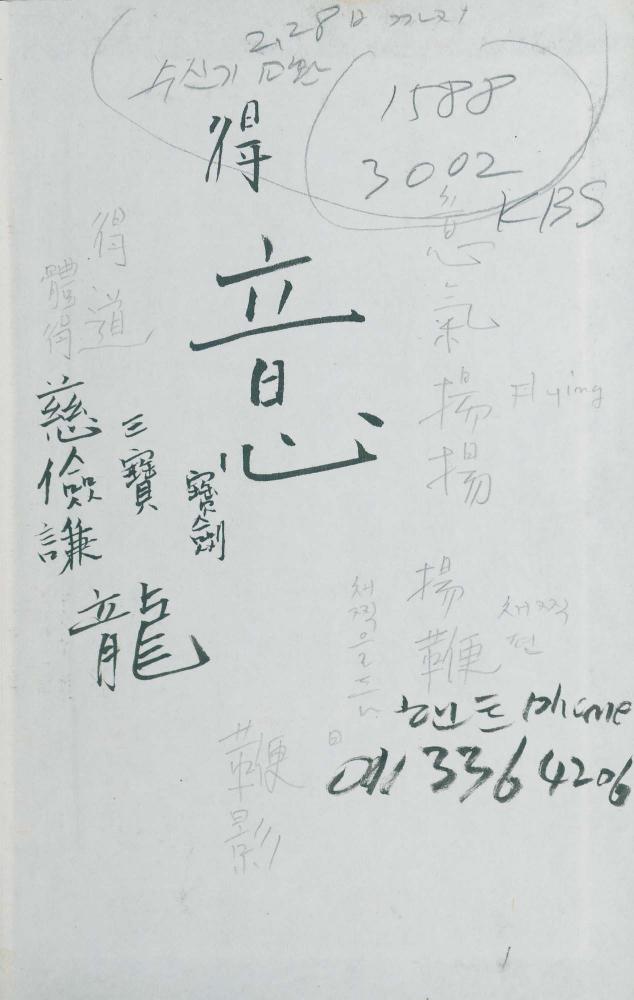 2,28日 까지
수신기
1588
3002
KBS
得
意
意氣揚揚
Flying
得道
體得
慈儉謙
三寶
寶劍
龍
揚鞭
채찍
편
채찍을 드니
핸드 Phone
336 4206
鞭影